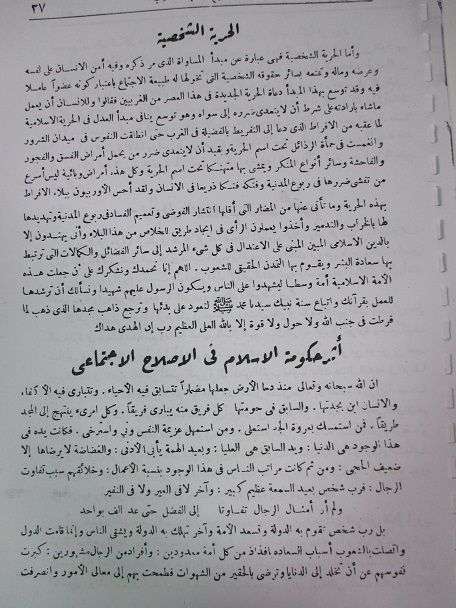 ٣٧
الحرية الشخصية
وأما الحرية الشخصية فهى عبارة عن مبدأ المساواة الذى مر ذكره وفيه أمن الانسان على نفسه
وعرضه وماله وتمتعه بسائر حقوقه الشخصية التى تخولها له طبيعة الاجتماع باعتبار كونه عضواً عاملا
فيه وقد توسع بهذا المبدأ دعاة الحرية الجديدة فى هذا العصر من الغربيين فقالوا وللانسان أن يعمل
ماشاء بارادته على شرط أن لايتعدى ضرره إلى سواه وهو توسع ينافى مبدأ العدل فى الحرية الاسلامية
لما عقبه من الافراط الذى دعا إلى التفريط بالفضيلة فى الغرب حتى انطلقت النفوس فى ميدان الشرور
وانغمست فى حمأة الرذائل تحت اسم الحرية وبقيد أن لايتعدى ضرر من يحمل أمراض الفسق والفجور
والفاحشة وسائر أنواع المنكر ويمشى بها متهتكا تحت اسم الحرية وكل هذه أمراض وبائية ليس أسرع
من تفشى ضررها فى ربوع المدنية وفتكه فتكا ذريعا فى الانسان ولقد أحس الأوربيون ببلاء الافراط
بهذه الحرية وما تأتى عنها من المضار التى أقلها انتشار الفوضى وتعميم الفساد فى ربوع المدنية وتهديدها
لها بالخراب والتدمير وأخذوا يعملون الرأى فى ايجاد طريق للخلاص من هذا البلاء وأنى يهتدون إلا
بالدين الاسلامى المبين المبنى على الاعتدال فى كل شىء المرشد إلى سائر الفضائل والكمالات التى ترتبط
بها سعادة البشر ويقوم بها التمدن الحقيقى للشعوب . اللهم إنا نحمدك ونشكرك على أن جعلت هذه
الأمة الاسلامية أمة وسطا ليشهدوا على الناس ويكون الرسول عليهم شهيدا ونسألك أن ترشدها
للعمل بقرآنك واتباع سنة نبيك سيدنا محمد ﷺ لتعود على بدئها وترجع ذاهب مجدها الذى ذهب لما
فرطت فى جنب الله ولا حول ولا قوة إلا بالله العلى العظيم رب إن الهدى هداك
أثر حكومة الاسلام فى الاصلاح الاجتماعى
ان الله سبحانه وتعالى منذ دحا الأرض جعلها مضماراً تتسابق فيه الأحياء . وتتبارى فيه الأكفاء
والانسان ابن بجدتها . والسابق فى حومتها كل فريق منه يبارى فريقاً . وكل امرىء ينتهج إلى المجد
طريقاً . فمن استمسك بعروة الجد استعلى . ومن استمهل عزيمة النفس ونى واسترخى . فكانت يده فى
هذا الوجود هى الدنيا : ويد السابق هى العليا : وبعيد الهمة يأبى الأدنى : والغضاضة لا يرضاها إلا
ضعيف الحجى : ومن ثم كانت مراتب الناس فى هذا الوجود بنسبة الأعمال : وخلائقهم سبب تفاوت
الرجال : فرب شخص بعيد السمعة عظيم كبير : وآخر لا فى العير ولا فى النفير
ولم أر أمثال الرجال تفاوتا إلى الفضل حتى عد الف بواحد
بل رب شخص تقوم به الدولة وتسعد الأمة وآخر تهلك به الدولة ويشقى الناس وإنما قامت الدول
واتصلت بالشعوب أسباب السعادة بأفذاذ من كل أمة معدودين : وأفراد من الرجال مشهورين : كبرت
نفوسهم عن أن تخلد إلى الدنايا وترضى بالحقير من الشهوات فطمحت بهم إلى معالى الأمور وانصرفت